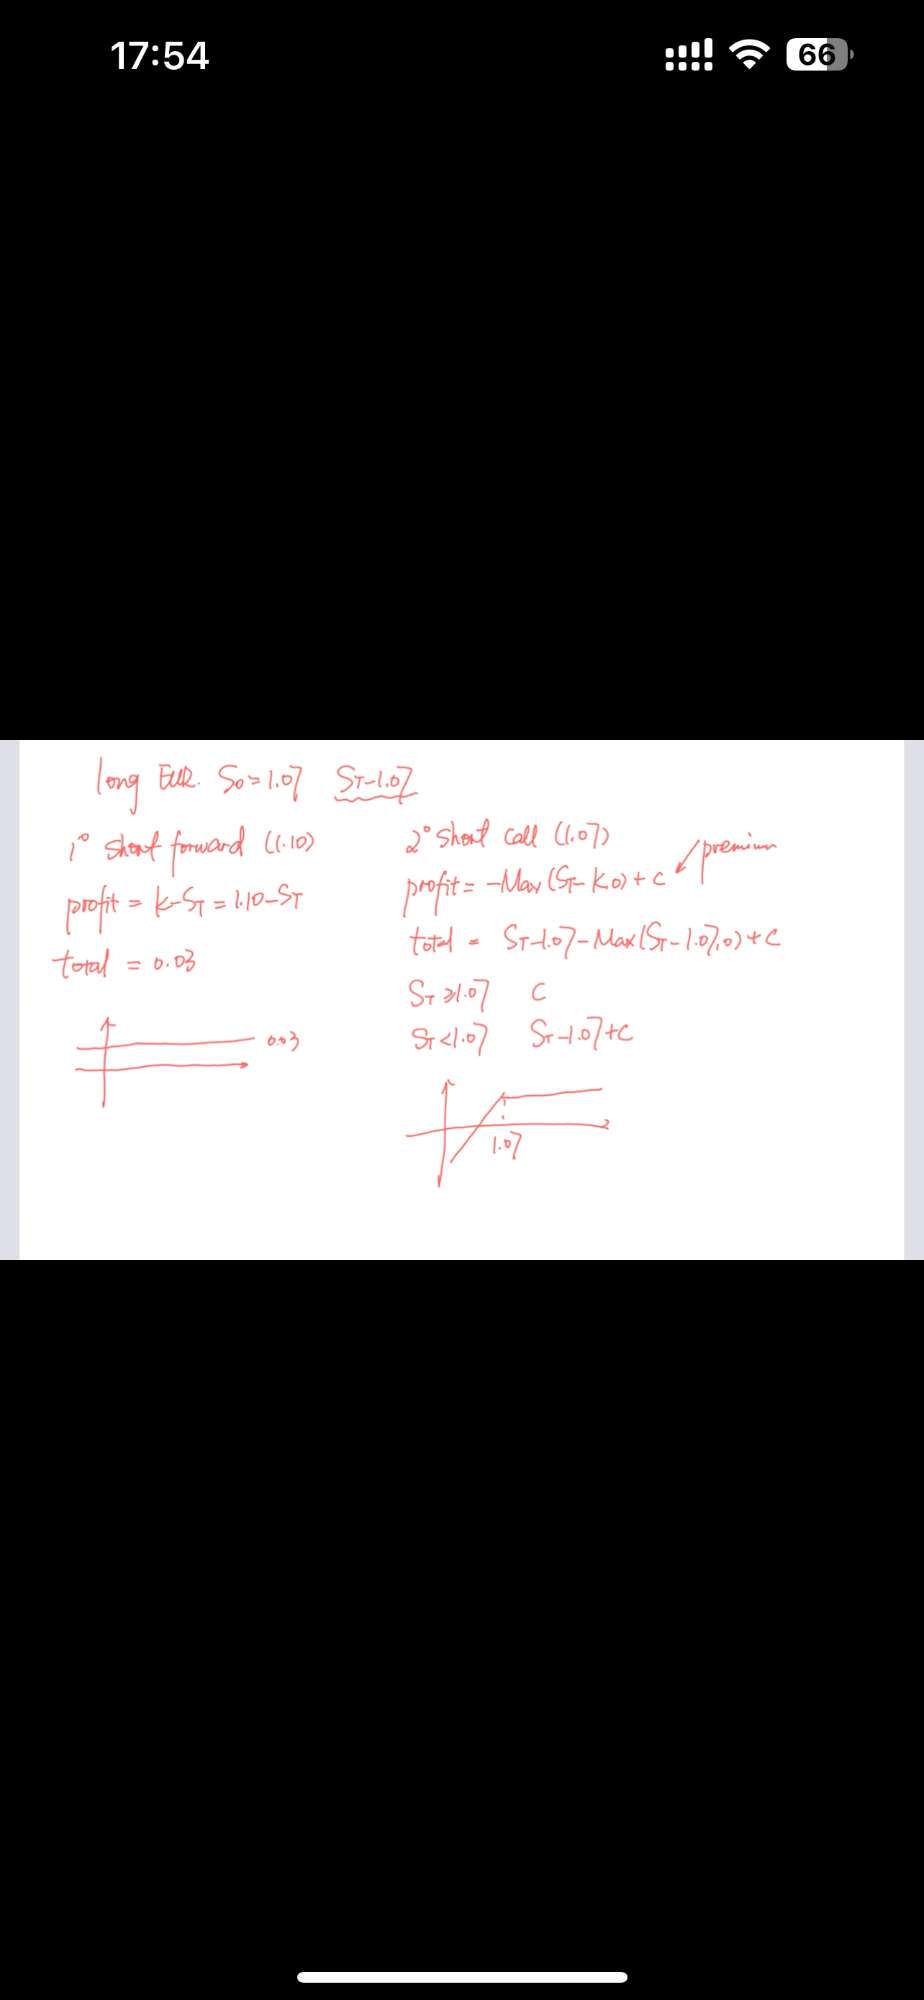 17:54
66
long EUR. S0=1.07 ST-1.07
1° short forward (1.10)
profit = K-ST = 1.10-ST
total = 0.03
0.03
2° short call (1.07)
premium
profit = -Max(ST-K,0)+c
total = ST-1.07-Max(ST-1.07,0)+c
ST≥1.07 c
ST<1.07 ST-1.07+c
1.07